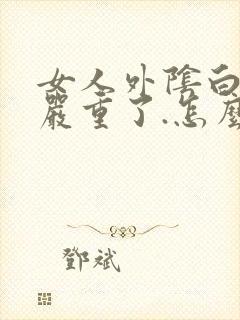 女人外陰白
嚴重了.怎麼
鄧斌